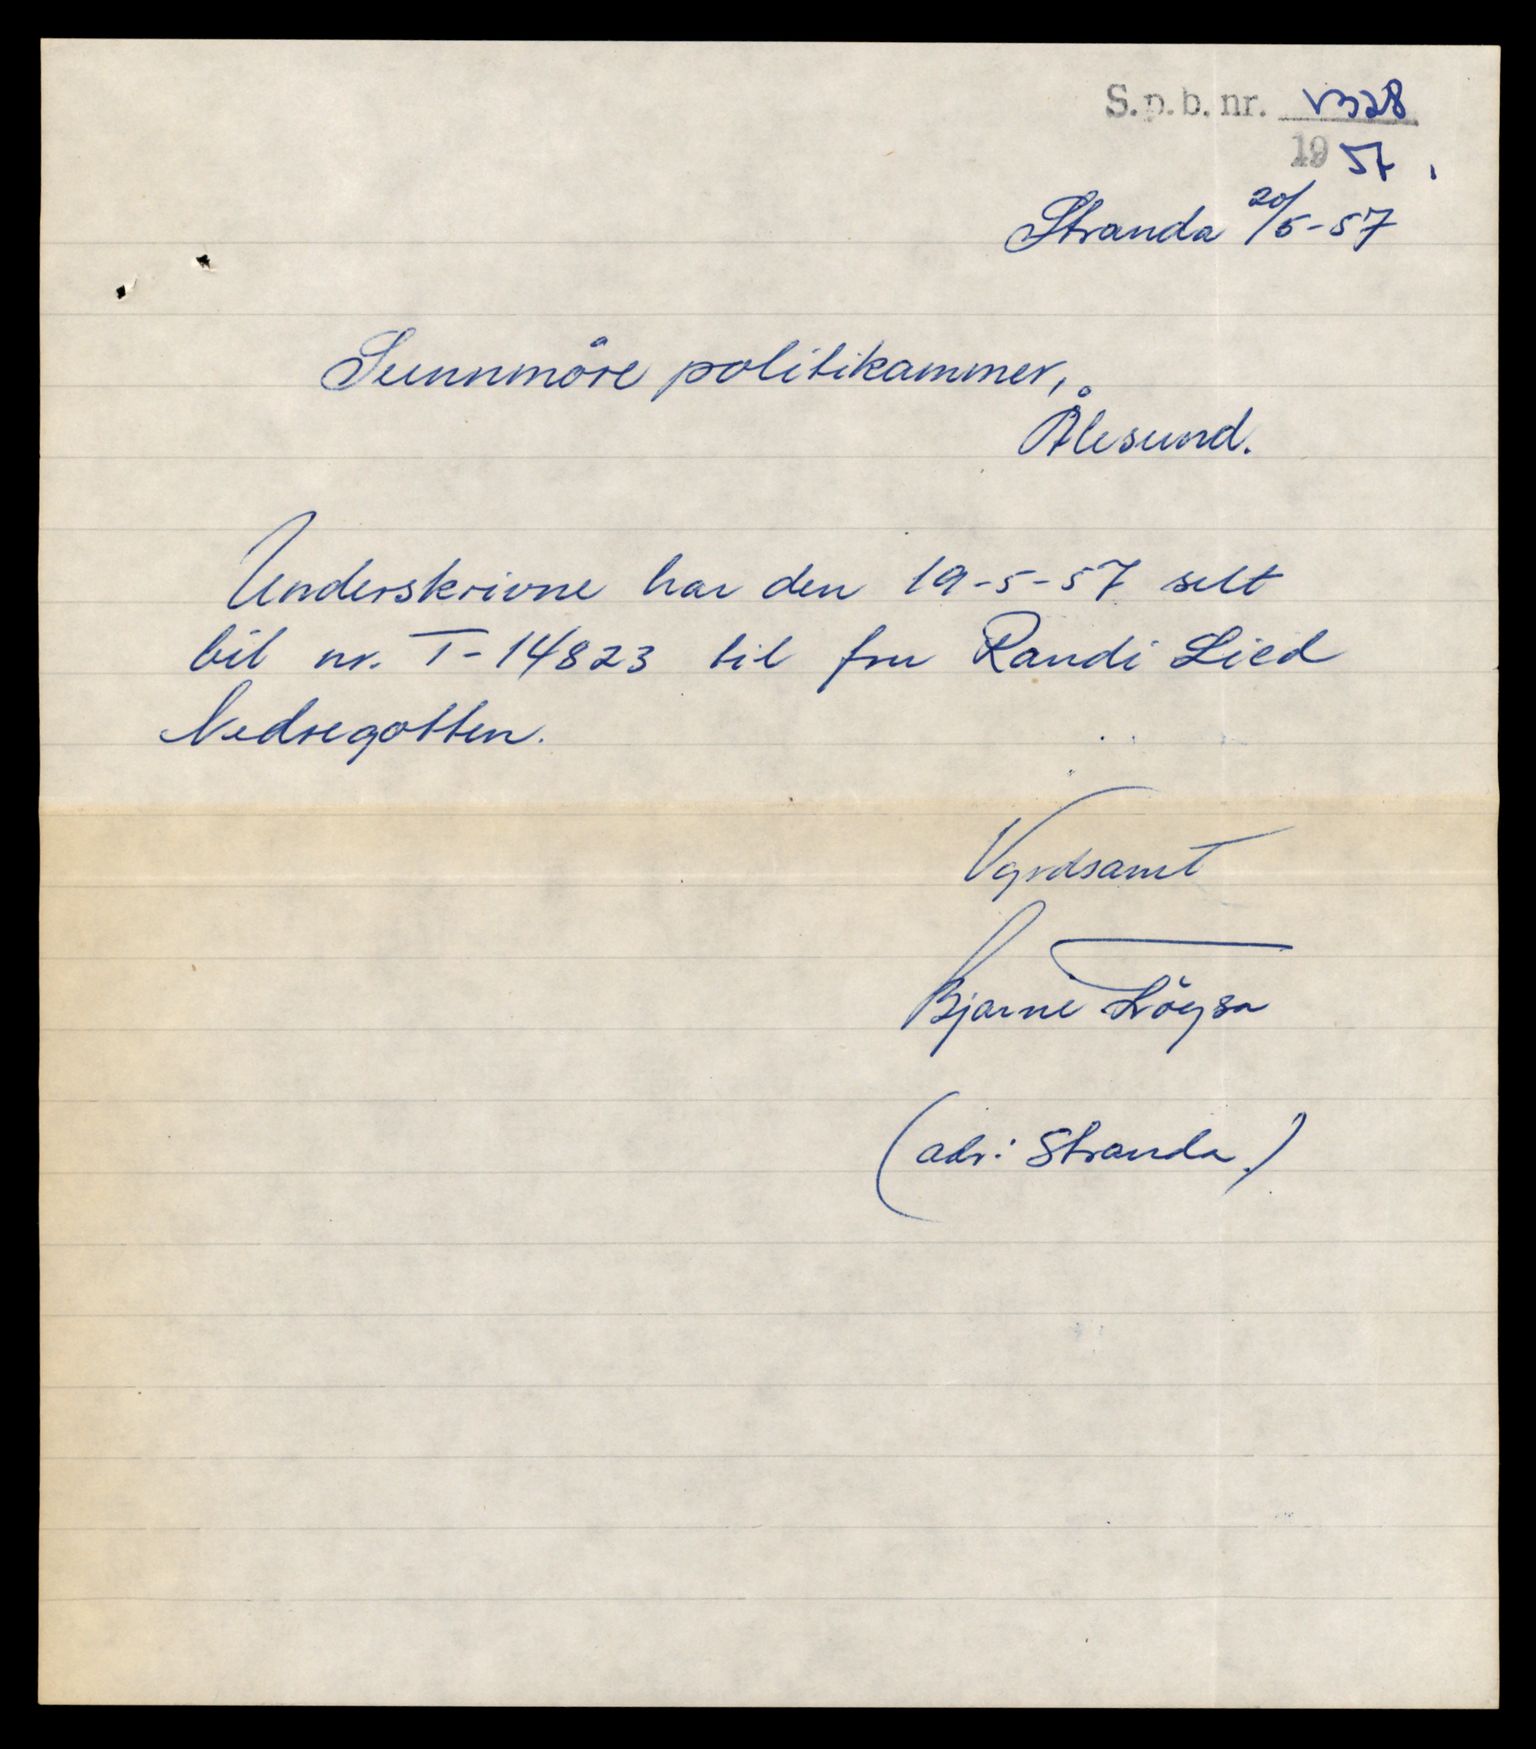 S.p.b. nr.
19 57.
Stranda 20/5-57
Sunnmöre politikammer,
Ålesund.
Underskrivne har den 19-5-57 selt
bil nr. T-14823 til fru Randi Lied
Nedregotten.
Vyrdsamt
Bjarne Löysa
(adr: Stranda.)